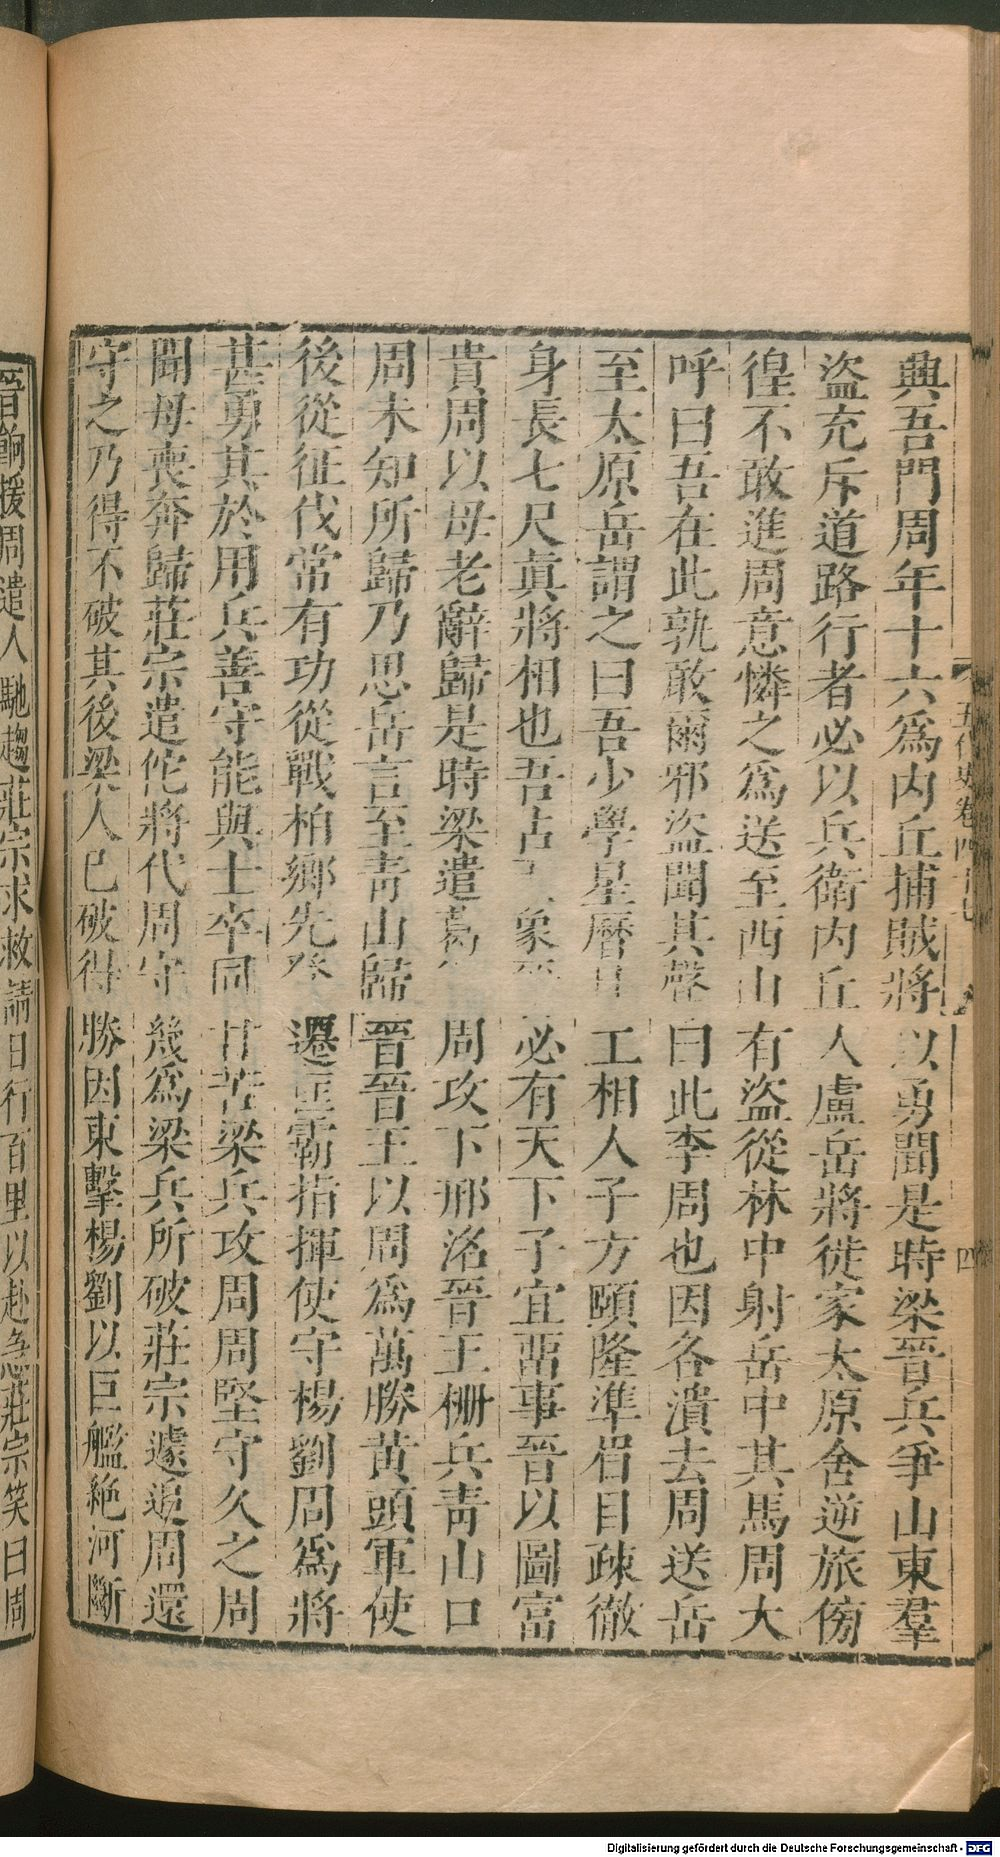 五代史卷四十七
四
興吾門周年十六爲內丘捕賊將以勇聞是時梁晉兵爭山東羣
盜充斥道路行者必以兵衛內丘人盧岳將徙家太原舍逆旅傍
徨不敢進周意憐之爲送至西山有盜從林中射岳中其馬周大
呼曰吾在此孰敢爾邪盜聞其聲曰此李周也因各潰去周送岳
至太原岳謂之曰吾少學星曆且工相人子方頤隆準眉目疎徹
身長七尺眞將相也吾占天象晉必有天下子宜留事晉以圖富
貴周以母老辭歸是時梁遣葛從周攻下邢洺晉王柵兵靑山口
周未知所歸乃思岳言至靑山歸晉晉王以周爲萬勝黃頭軍使
後從征伐常有功從戰柏鄉先登遷匡霸指揮使守楊劉周爲將
甚勇其於用兵善守能與士卒同甘苦梁兵攻周周堅守久之周
聞母喪奔歸莊宗遣佗將代周守幾爲梁兵所破莊宗遽追周還
守之乃得不破其後梁人已破得勝因東擊楊劉以巨艦絶河斷
晉餉援周遣人馳趨莊宗求救請日行百里以赴急莊宗笑曰周
Digitalisierung gefördert durch die Deutsche Forschungsgemeinschaft - DFG